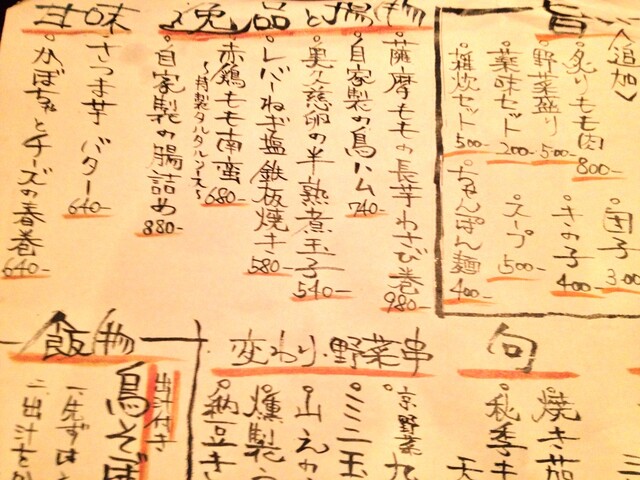 旨
〈追加〉
炙りもも肉 800-
野菜盛り 500-
薬味セット 200-
雑炊セット 500-
団子 300
きの子 400-
スープ 500-
ちゃんぽん麺 400-
逸品と揚物
薩摩ももの長芋わさび巻 980-
自家製の鳥ハム 740-
奥久慈卵の半熟煮玉子 540-
レバーねぎ塩鉄板焼き 580-
赤鶏もも南蛮 680-
〜特製タルタルソース〜
自家製の腸詰め 880-
甘味
さつま芋バター 640-
かぼちゃとチーズの春巻 640-
旬
焼き茄
秋季キ
天
変わり野菜串
京野菜
ミニ玉
山えの
燻製う
納豆き
飯物
出汁付き
鳥そば
一、先ずは
二、出汁を